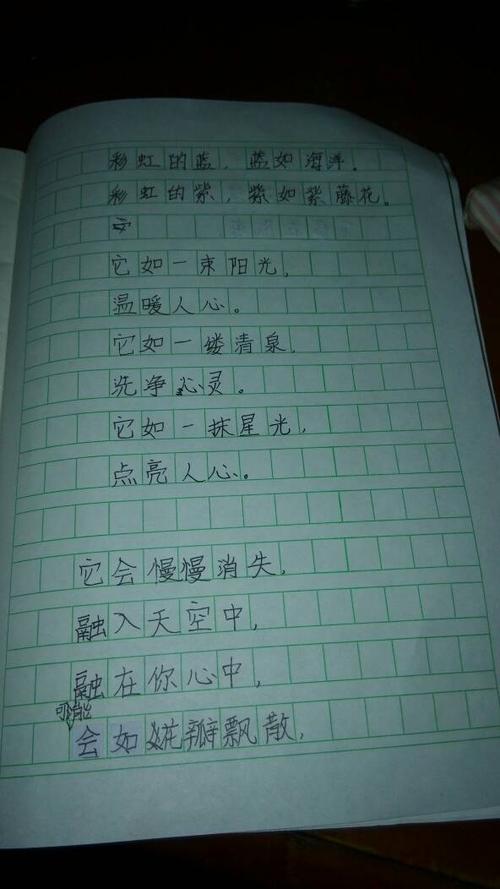 彩虹的蓝，蓝如海洋。
彩虹的紫，紫如紫藤花。
它如一束阳光，
温暖人心。
它如一缕清泉，
洗净心灵。
它如一抹星光，
点亮人心。
它会慢慢消失，
融入天空中，
融在你心中，
可能
会如花瓣飘散，